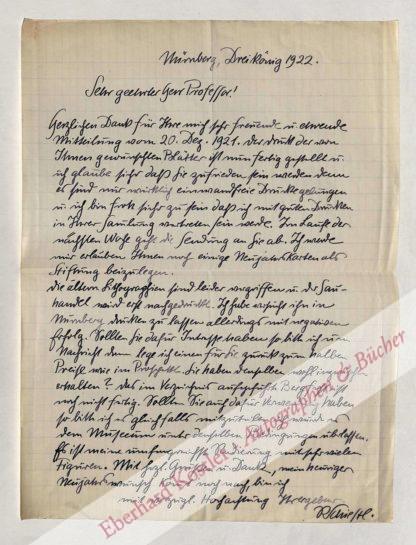 Nürnberg, Dreikönig 1922.
Sehr geehrter Herr Professor!
Herzlichen Dank für Ihre mich sehr freuende u. ehrende
Mitteilung vom 20. Dez. 1921. Der Druck der von
Ihnen gewünschten Blätter ist nun fertig gestellt u.
ich glaube sicher daß Sie zufrieden sein werden denn
es sind mir wirklich einwandfreie Druckegelungen
u. ich bin froh sicher zu sein daß ich mit guten Drucken
in Ihrer Sammlung vertreten sein werde. Im Laufe der
nächsten Woche geht die Sendung an Sie ab. Ich werde
mir erlauben Ihnen noch einige Neujahrskarten als
Stiftung beizulegen.
Die ältern Lithographien sind leider vergriffen u. der
handel wird erst nachgedruckt. Ich habe versucht ihn in
Nürnberg drucken zu lassen allerdings mit negativem
Erfolg. Sollten Sie dafür Interesse haben so bitte ich um
Nachricht dann lege ich einen für Sie zurück zum halben
Preise wie im Prospekt. Sie haben denselben
erhalten? Das im Verzeichnis aufgeführte ist
noch nicht fertig. Sollten Sie auch dafür haben
so bitte ich es gleichfalls mitzuteilen ich würde es
dem Museum unter denselben Bedingungen überlassen.
Es ist meine umfangreichste Radierung mit sehr vielen
Figuren. Mit herzl. Grüßen u. Dank, mein heuriger
Neujahrswunsch kommt noch nach, bin ich
mit vorzügl. Hochachtung Ihr ergebener
R. Schiestl.
Eberhard Köstler Autographen & Bücher